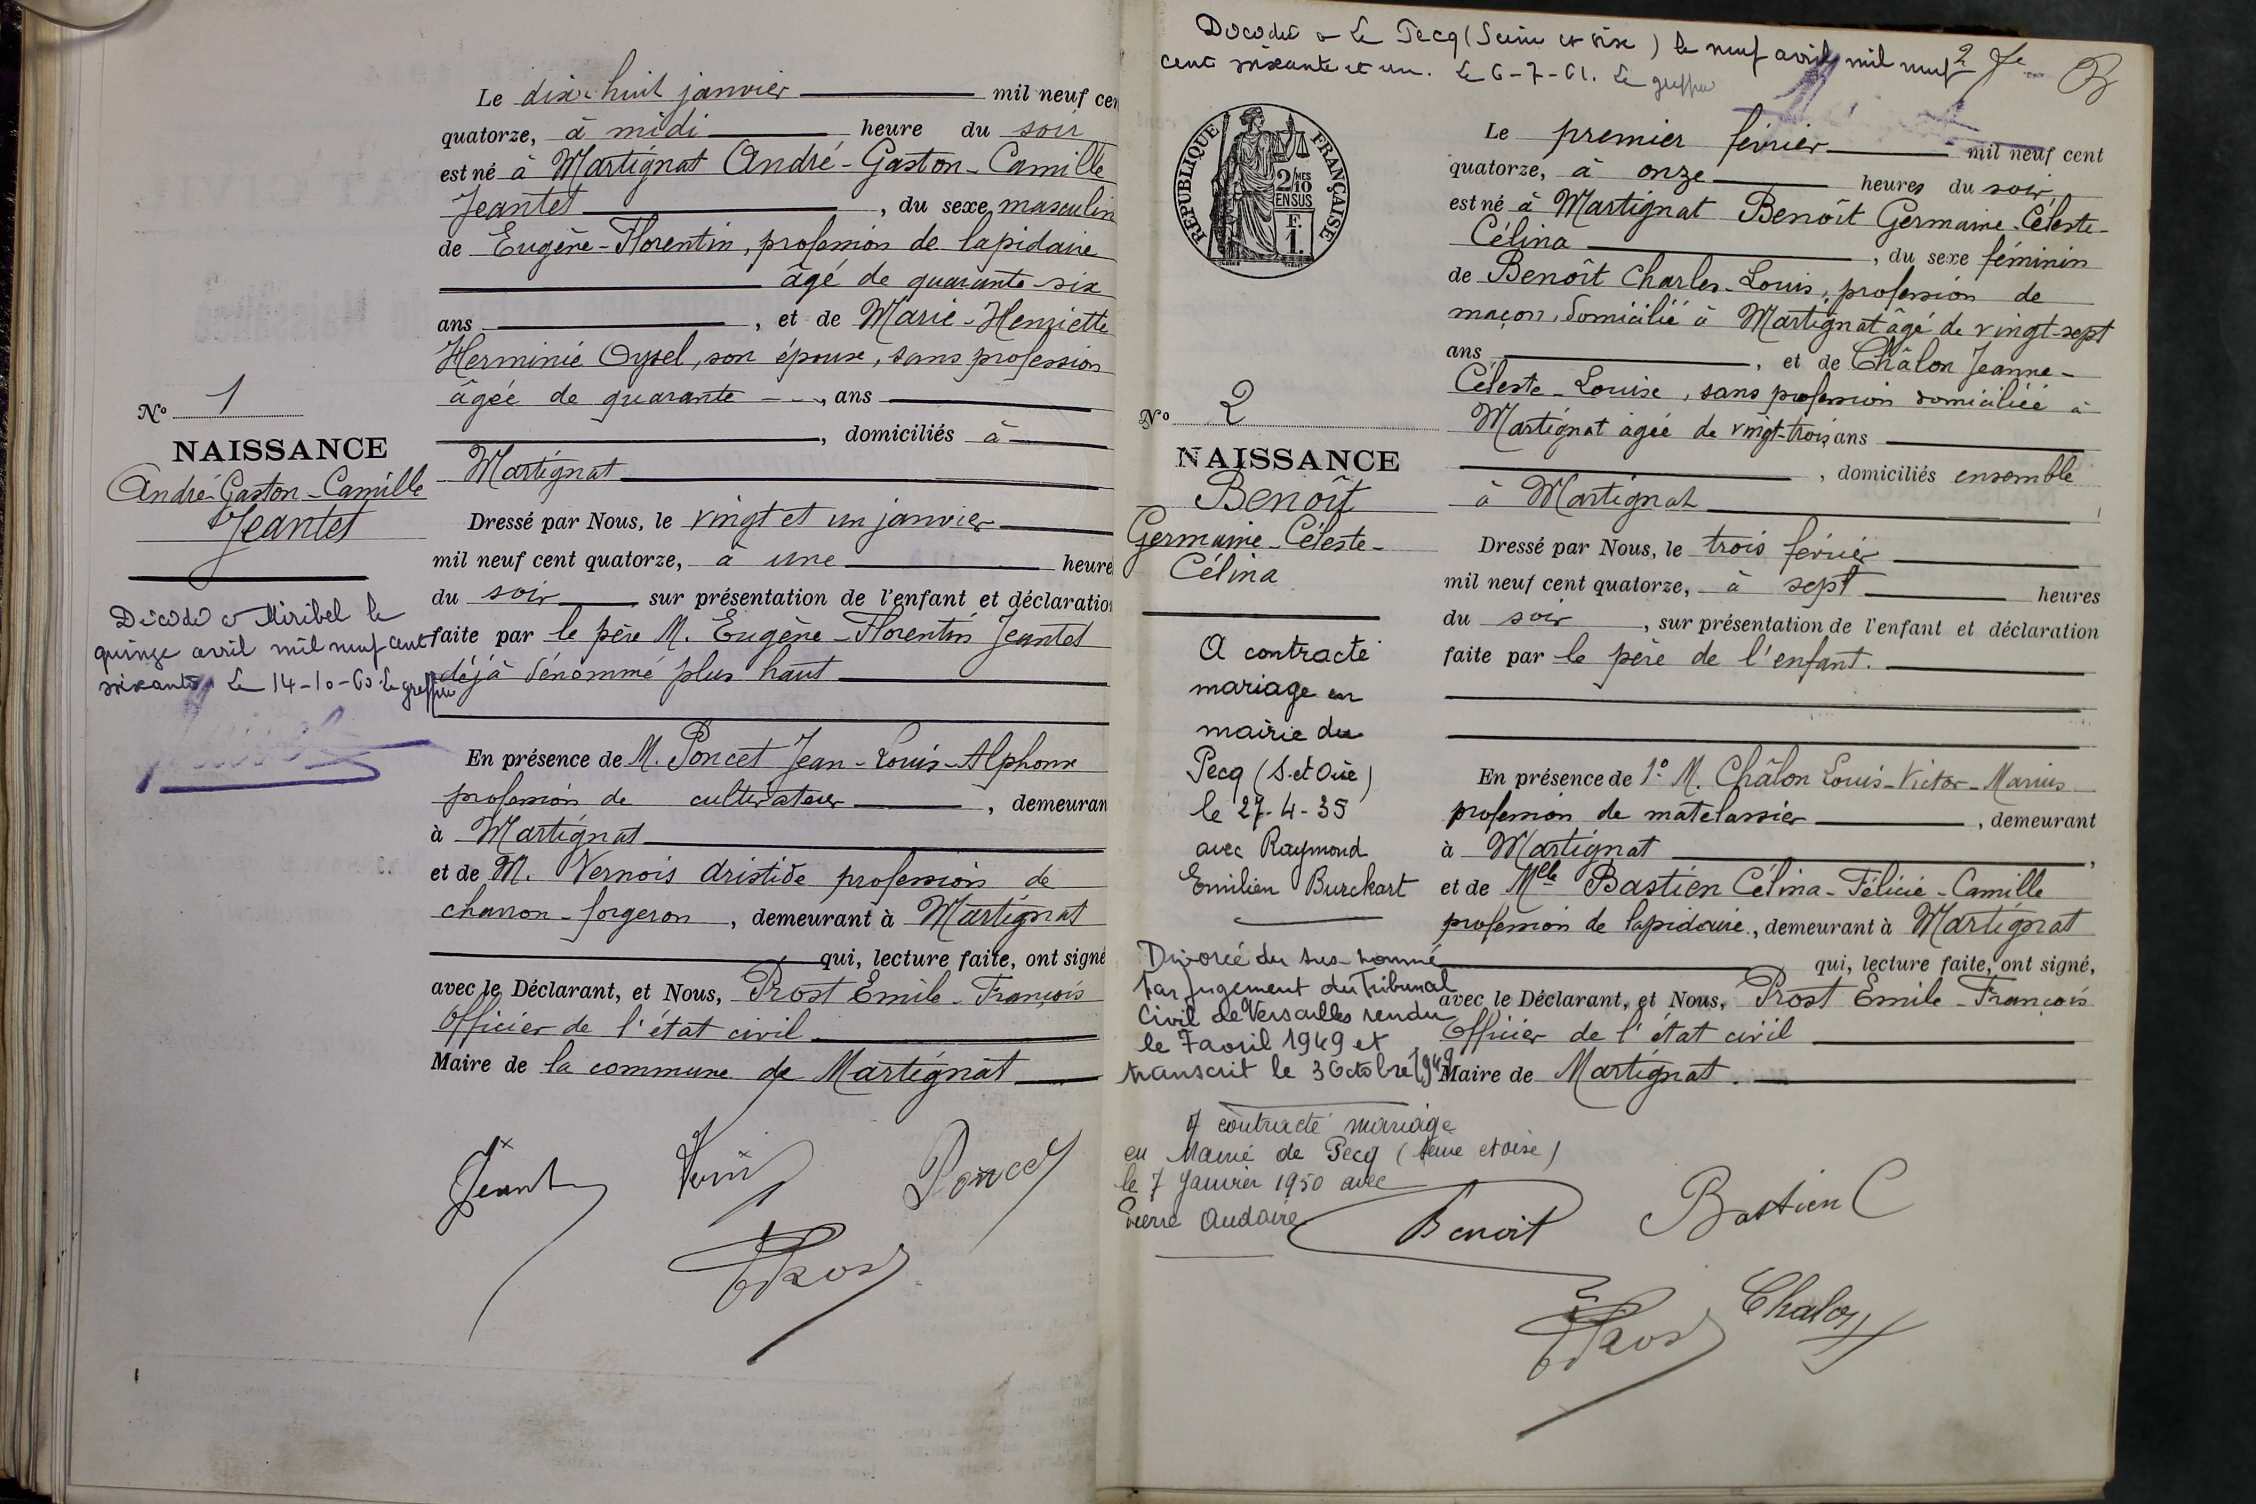 Le dix-huit janvier mil neuf cen
quatorze, à midi heure du soir
est né à Martignat André-Gaston-Camille
Jeantet, du sexe masculin
de Eugène-Florentin, profession de lapidaire
âgé de quarante-six
ans, et de Marie-Henriette
Herminie Oysel, son épouse, sans profession
âgée de quarante, ans
, domiciliés à
Martignat
Dressé par Nous, le vingt et un janvier
mil neuf cent quatorze, à une heure
du soir sur présentation de l'enfant et déclaration
faite par le père M. Eugène-Florentin Jeantet
déjà dénommé plus haut
En présence de M. Poncet Jean-Louis-Alphonse
profession de cultivateur, demeuran
à Martignat
et de M. Vernois Aristide profession de
charron-forgeron, demeurant à Martignat
qui, lecture faite, ont signé
avec le Déclarant, et Nous, Prost Emile-François
Officier de l'état civil
Maire de la commune de Martignat
Jeantet
Poncet
Prost
No 1
NAISSANCE
André-Gaston-Camille
Jeantet
Décédé à Miribel le
quinze avril mil neuf cent
soixante. Le 14-10-60 le greffier
Décédée à Le Pecq (Seine et Oise) le neuf avril mil neuf
cent soixante et un. Le 6-7-61. Le greffier
2
RÉPUBLIQUE FRANÇAISE
2/10 MES
EN SUS
F.
1.
No 2
NAISSANCE
Benoît
Germaine-Céleste-
Célina
A contracté
mariage en
mairie du
Pecq (S.et Oise)
le 27-4-35
avec Raymond
Emilien Burckart
Divorcée du sus-nommé
par jugement du Tribunal
Civil de Versailles rendu
le 7 avril 1949 et
transcrit le 3 Octobre 1949
A contracté mariage
en Mairie de Pecq (Seine et oise)
le 7 Janvier 1950 avec
Pierre Audaire
Le premier février mil neuf cent
quatorze, à onze heures du soir,
est né à Martignat Benoît Germaine-Céleste-
Célina, du sexe féminin
de Benoît Charles-Louis, profession de
maçon, domicilié à Martignat âgé de vingt-sept
ans, et de Châlon Jeanne-
Céleste-Louise, sans profession domiciliée à
Martignat agée de vingt-trois ans
, domiciliés ensemble
à Martignat
Dressé par Nous, le trois février
mil neuf cent quatorze, à sept heures
du soir, sur présentation de l'enfant et déclaration
faite par le père de l'enfant.
En présence de 1º M. Châlon Louis-Victor-Marius
profession de matelassier, demeurant
à Martignat,
et de Melle Bastien Célina-Félicie-Camille
profession de lapidaire, demeurant à Martignat
qui, lecture faite, ont signé,
avec le Déclarant, et Nous, Prost Emile-François
Officier de l'état civil
Maire de Martignat.
Benoit
Bastien C
Chalon
Prost